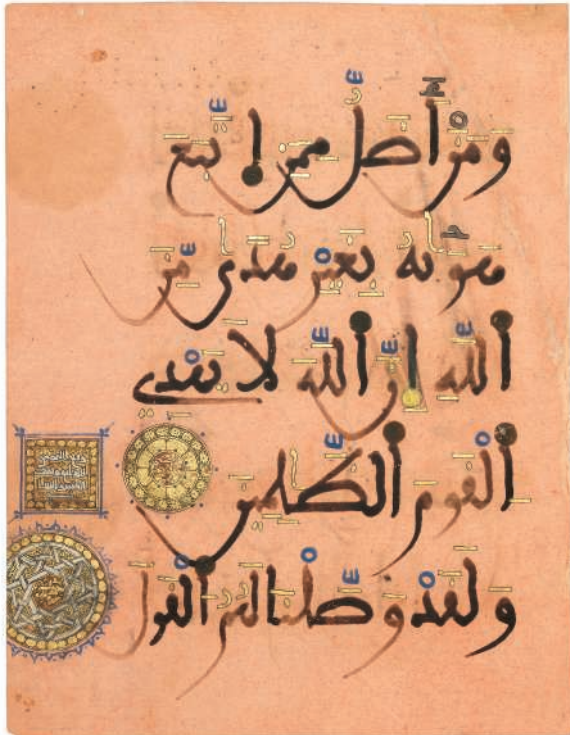 وَمَنْ أَضَلُّ مِمَّنِ اِتَّبَعَ
هَوَىٰهُ بِغَيْرِ هُدًى مِّنَ
اَللَّهِ إِنَّ اَللَّهَ لَا يَهْدِي
اَلْقَوْمَ اَلظَّٰلِمِينَ
وَلَقَدْ وَصَّلْنَا لَهُمُ اُلْقَوْلَ